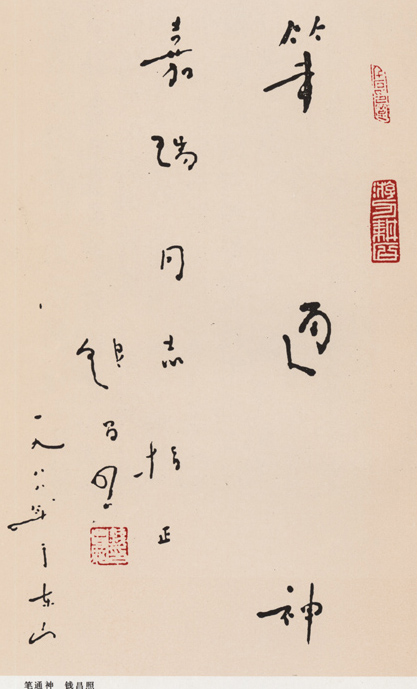 筆通神
嘉瑞同志指正
钱昌照
一九八八年于东山
笔通神 钱昌照